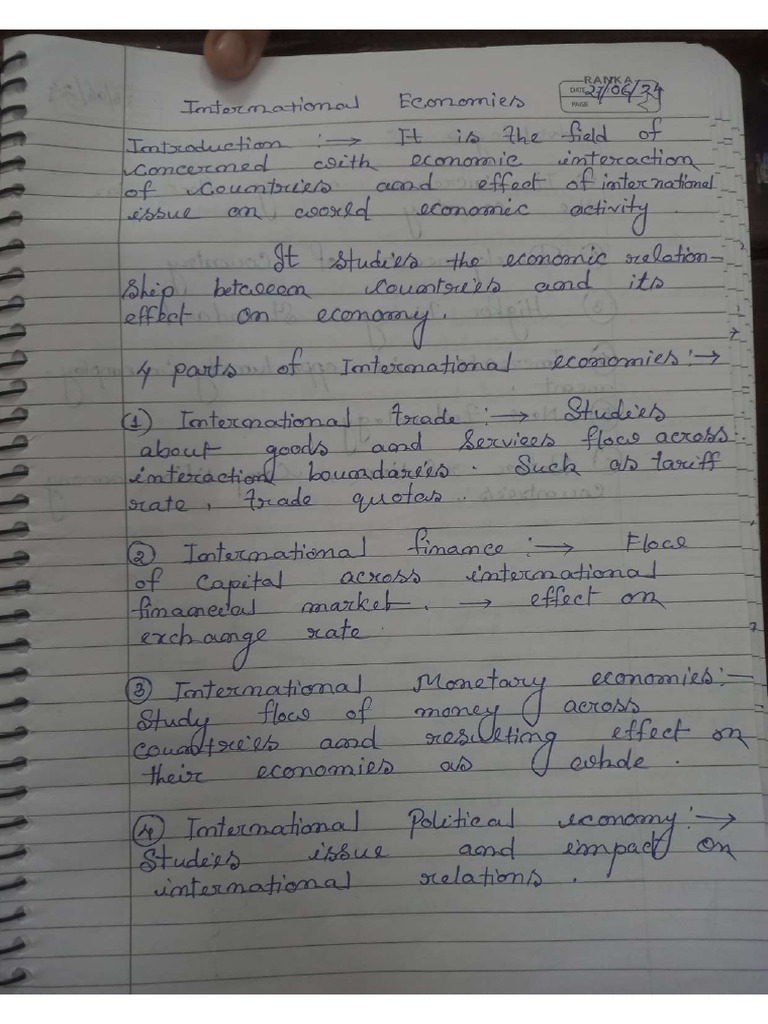 RANKA
DATE 27/06/24
PAGE
International Economies
Introduction :→ It is the field of
concerned with economic interaction
of countries and effect of international
issue on world economic activity.
It studies the economic relation-
ship between countries and its
effect on economy.
4 parts of International economies:→
(1) International trade :→ Studies
about goods and services flow across
interaction boundaries. Such as tariff
rate, trade quotas.
(2) International finance :→ Flow
of capital across international
financial market. → effect on
exchange rate.
(3) International Monetary economies:-
Study flow of money across
countries and resulting effect on
their economies as whole.
(4) International Political economy:→
Studies issue and impact on
international relations.